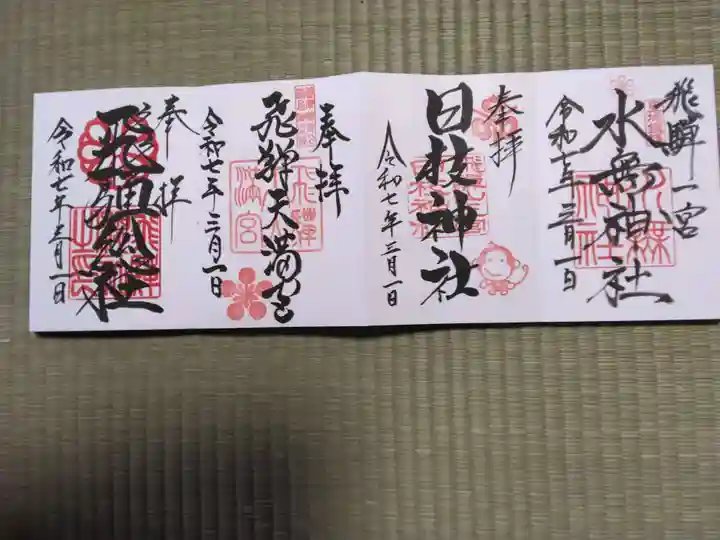 飛騨一宮
水無神社
令和七年三月一日
奉拝
日枝神社
令和七年三月一日
奉拝
飛騨天満宮
令和七年三月一日
奉拝
飛騨総社
令和七年三月一日